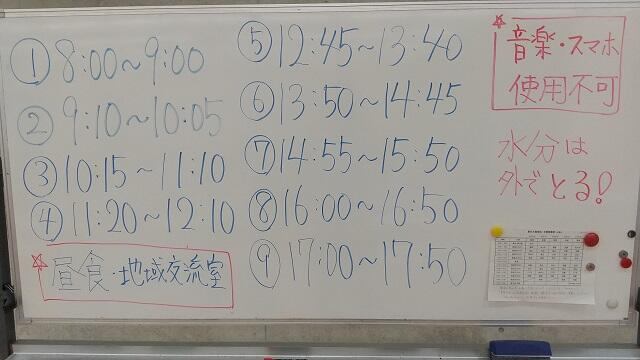 ① 8:00～9:00
② 9:10～10:05
③ 10:15～11:10
④ 11:20～12:10
☆昼食・地域交流室
⑤ 12:45～13:40
⑥ 13:50～14:45
⑦ 14:55～15:50
⑧ 16:00～16:50
⑨ 17:00～17:50
☆音楽・スマホ
使用不可
水分は
外でとる!